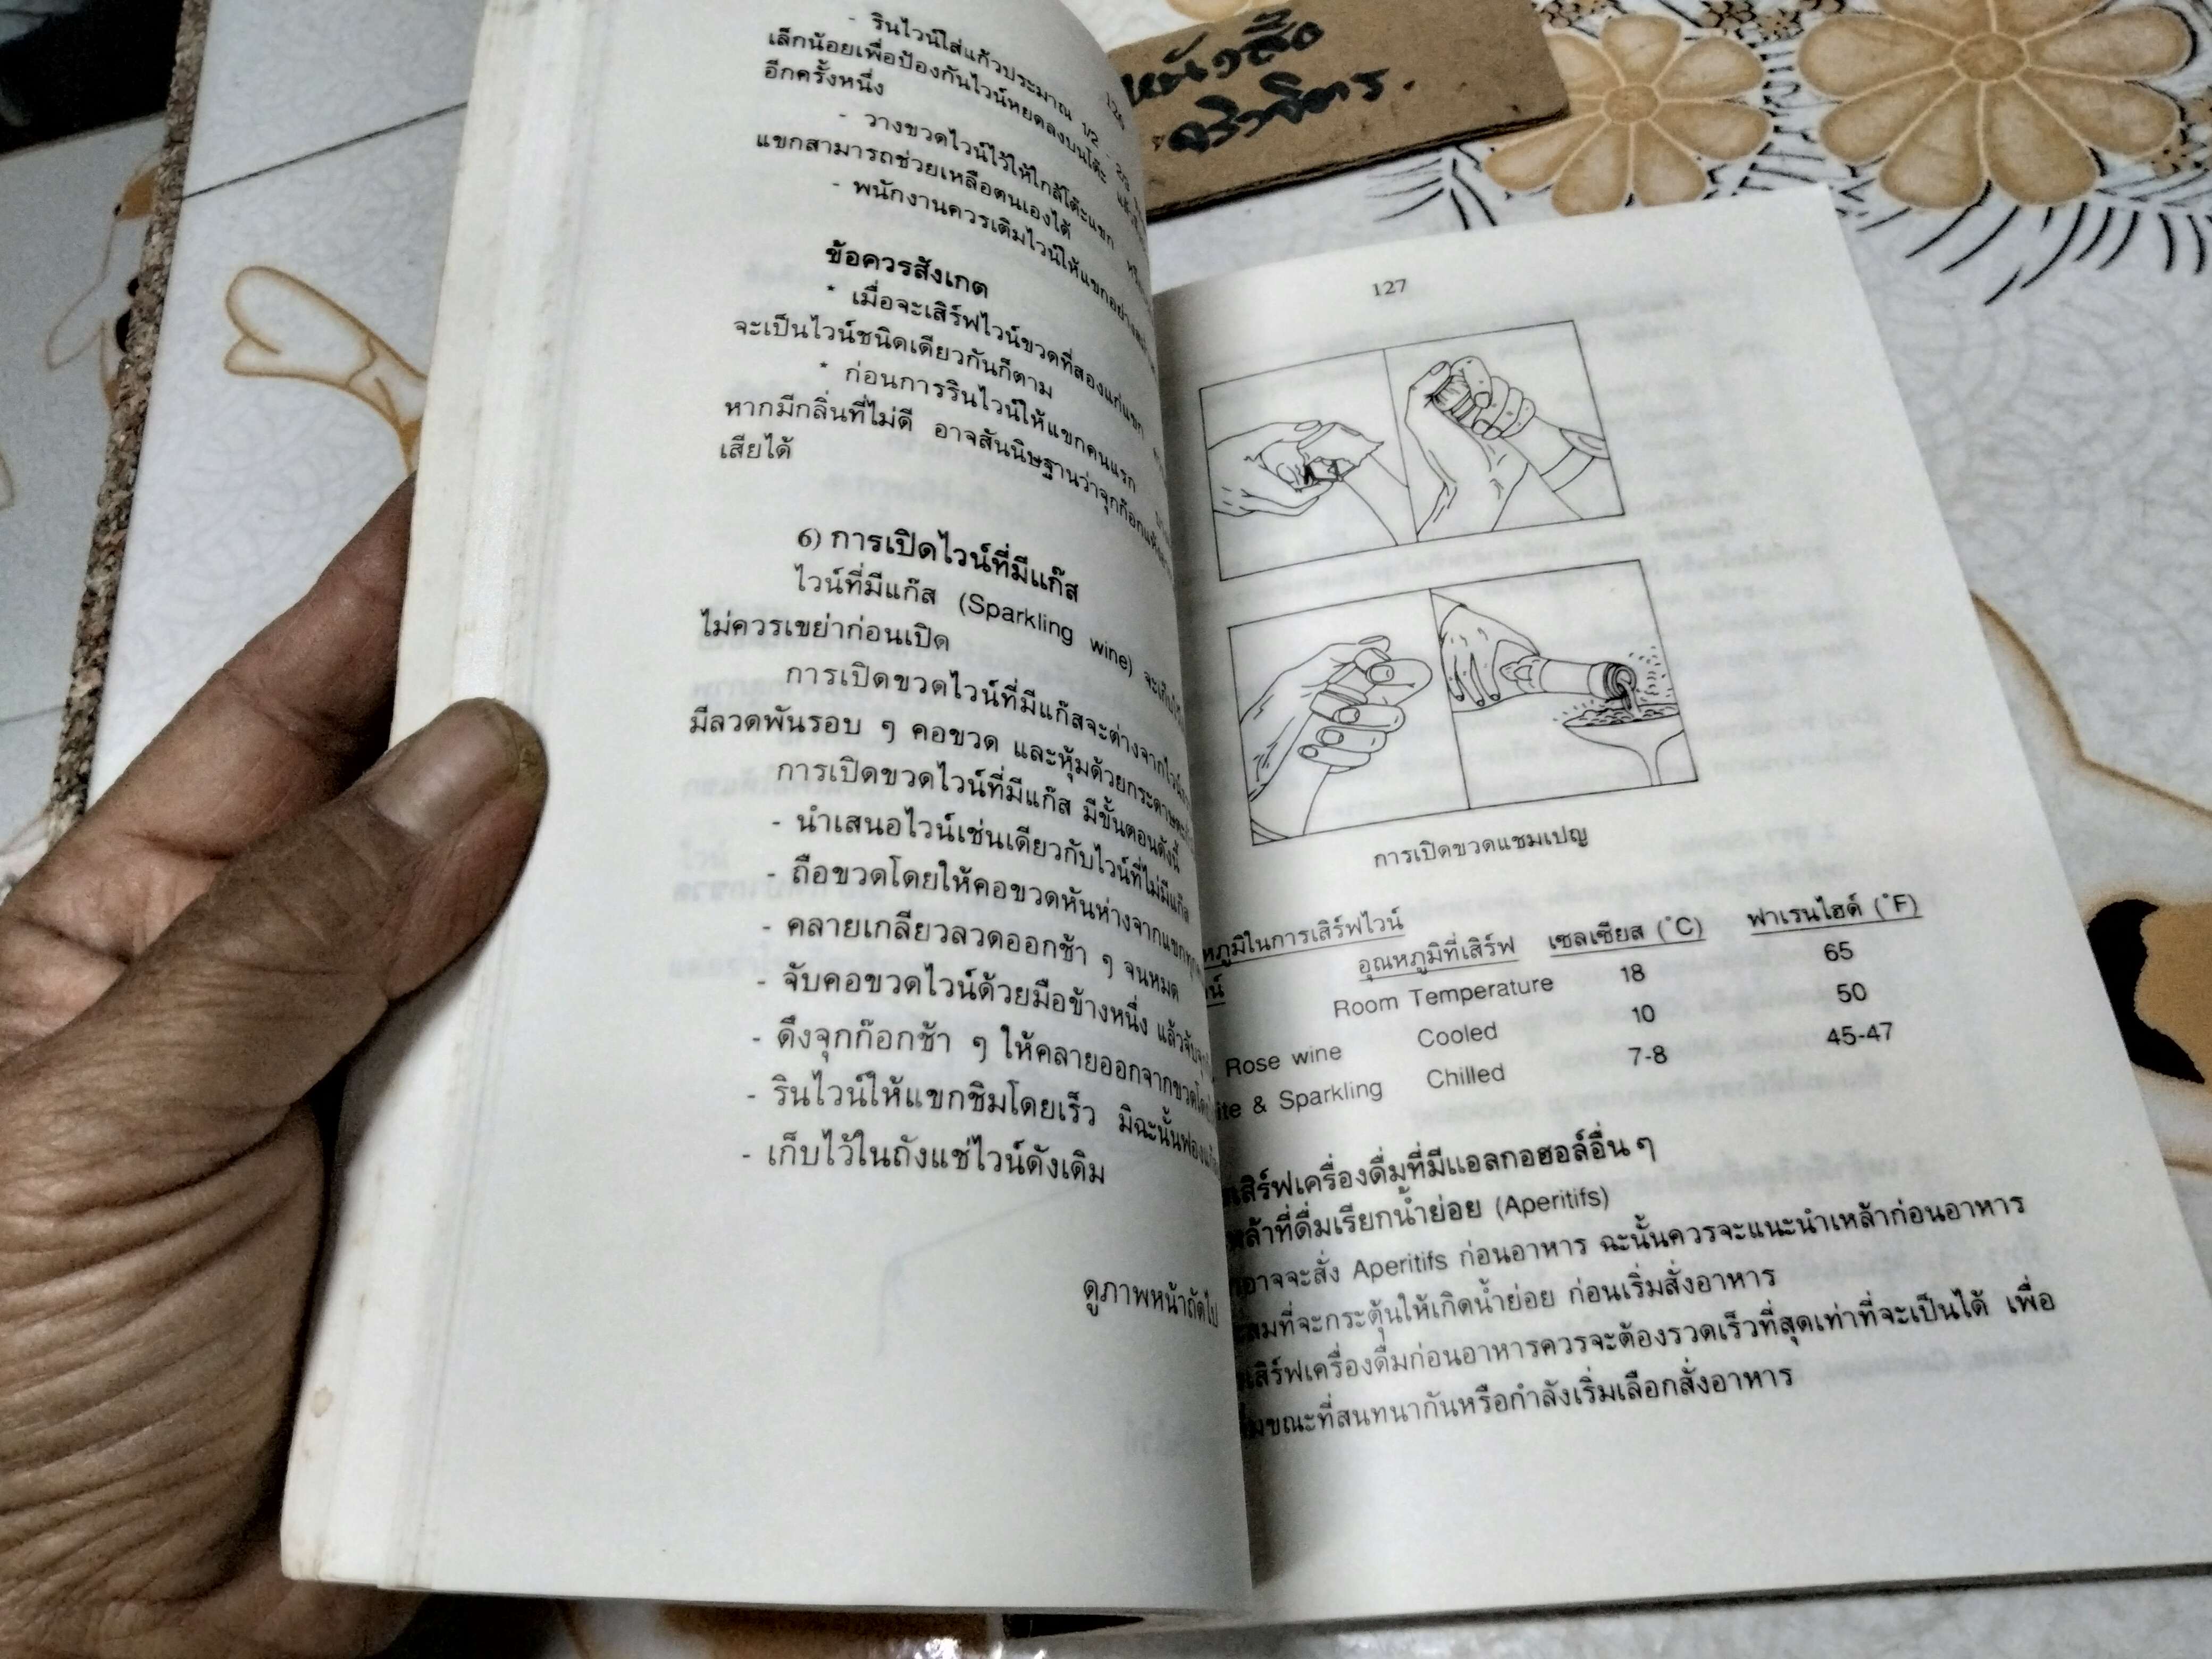 126
- รินไวน์ใส่แก้วประมาณ 1/2 -
เล็กน้อยเพื่อป้องกันไวน์หยดลงบนโต๊ะ
อีกครั้งหนึ่ง
- วางขวดไวน์ไว้ให้ใกล้โต๊ะแขก
แขกสามารถช่วยเหลือตนเองได้
- พนักงานควรเติมไวน์ให้แขกอย่าง
ข้อควรสังเกต
* เมื่อจะเสิร์ฟไวน์ขวดที่สองแก่แขก
จะเป็นไวน์ชนิดเดียวกันก็ตาม
* ก่อนการรินไวน์ให้แขกคนแรก
หากมีกลิ่นที่ไม่ดี อาจสันนิษฐานว่าจุกก๊อก
เสียได้
6) การเปิดไวน์ที่มีแก๊ส
ไวน์ที่มีแก๊ส (Sparkling wine) จะเก็บ
ไม่ควรเขย่าก่อนเปิด
การเปิดขวดไวน์ที่มีแก๊สจะต่างจากไวน์
มีลวดพันรอบ ๆ คอขวด และหุ้มด้วยกระดาษ
การเปิดขวดไวน์ที่มีแก๊ส มีขั้นตอนดังนี้
- นำเสนอไวน์เช่นเดียวกับไวน์ที่ไม่มีแก๊ส
- ถือขวดโดยให้คอขวดหันห่างจากแขก
- คลายเกลียวลวดออกช้า ๆ จนหมด
- จับคอขวดไวน์ด้วยมือข้างหนึ่ง แล้วจับ
- ดึงจุกก๊อกช้า ๆ ให้คลายออกจากขวด
- รินไวน์ให้แขกชิมโดยเร็ว มิฉะนั้นฟอง
- เก็บไว้ในถังแช่ไวน์ดังเดิม
ดูภาพหน้าถัดไป
127
การเปิดขวดแชมเปญ
หภูมิในการเสิร์ฟไวน์
อุณหภูมิที่เสิร์ฟ เซลเซียส (°C) ฟาเรนไฮด์ (°F)
Room Temperature 18 65
Rose wine Cooled 10 50
ite & Sparkling Chilled 7-8 45-47
เสิร์ฟเครื่องดื่มที่มีแอลกอฮอล์อื่น ๆ
หล้าที่ดื่มเรียกน้ำย่อย (Aperitifs)
อาจจะสั่ง Aperitifs ก่อนอาหาร ฉะนั้นควรจะแนะนำเหล้าก่อนอาหาร
สมที่จะกระตุ้นให้เกิดน้ำย่อย ก่อนเริ่มสั่งอาหาร
เสิร์ฟเครื่องดื่มก่อนอาหารควรจะต้องรวดเร็วที่สุดเท่าที่จะเป็นได้ เพื่อ
ขณะที่สนทนากันหรือกำลังเริ่มเลือกสั่งอาหาร